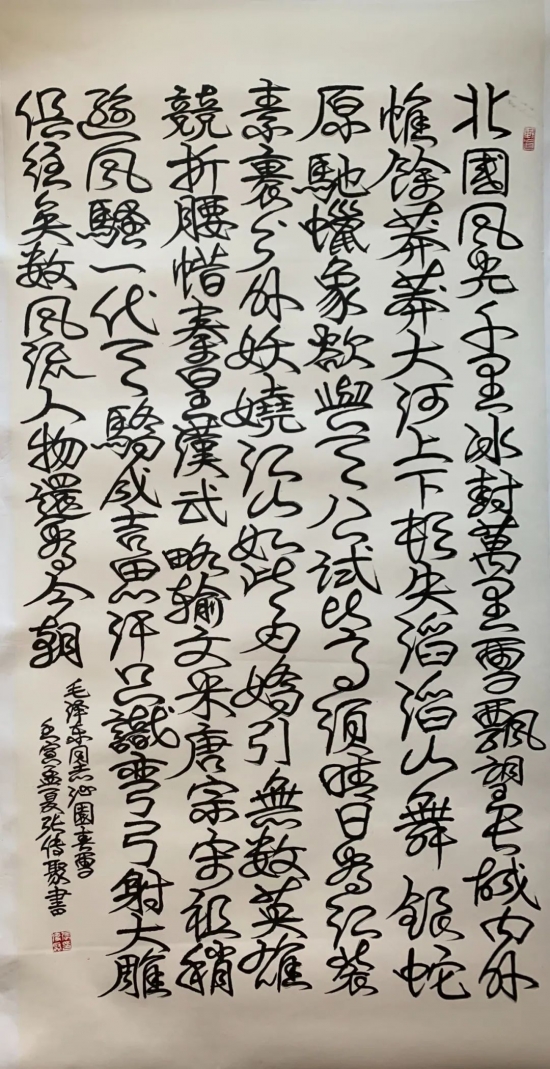 北國風光千里冰封萬里雪飄望長城内外
惟餘莽莽大河上下頓失滔滔山舞銀蛇
原馳蠟象欲與天公試比高須晴日看紅裝
素裹分外妖嬈江山如此多嬌引無數英雄
競折腰惜秦皇漢武略輸文采唐宗宋祖稍
遜風騷一代天驕成吉思汗只識彎弓射大雕
俱往矣數風流人物還看今朝
毛泽东同志沁園春雪
壬寅孟夏张传聚書